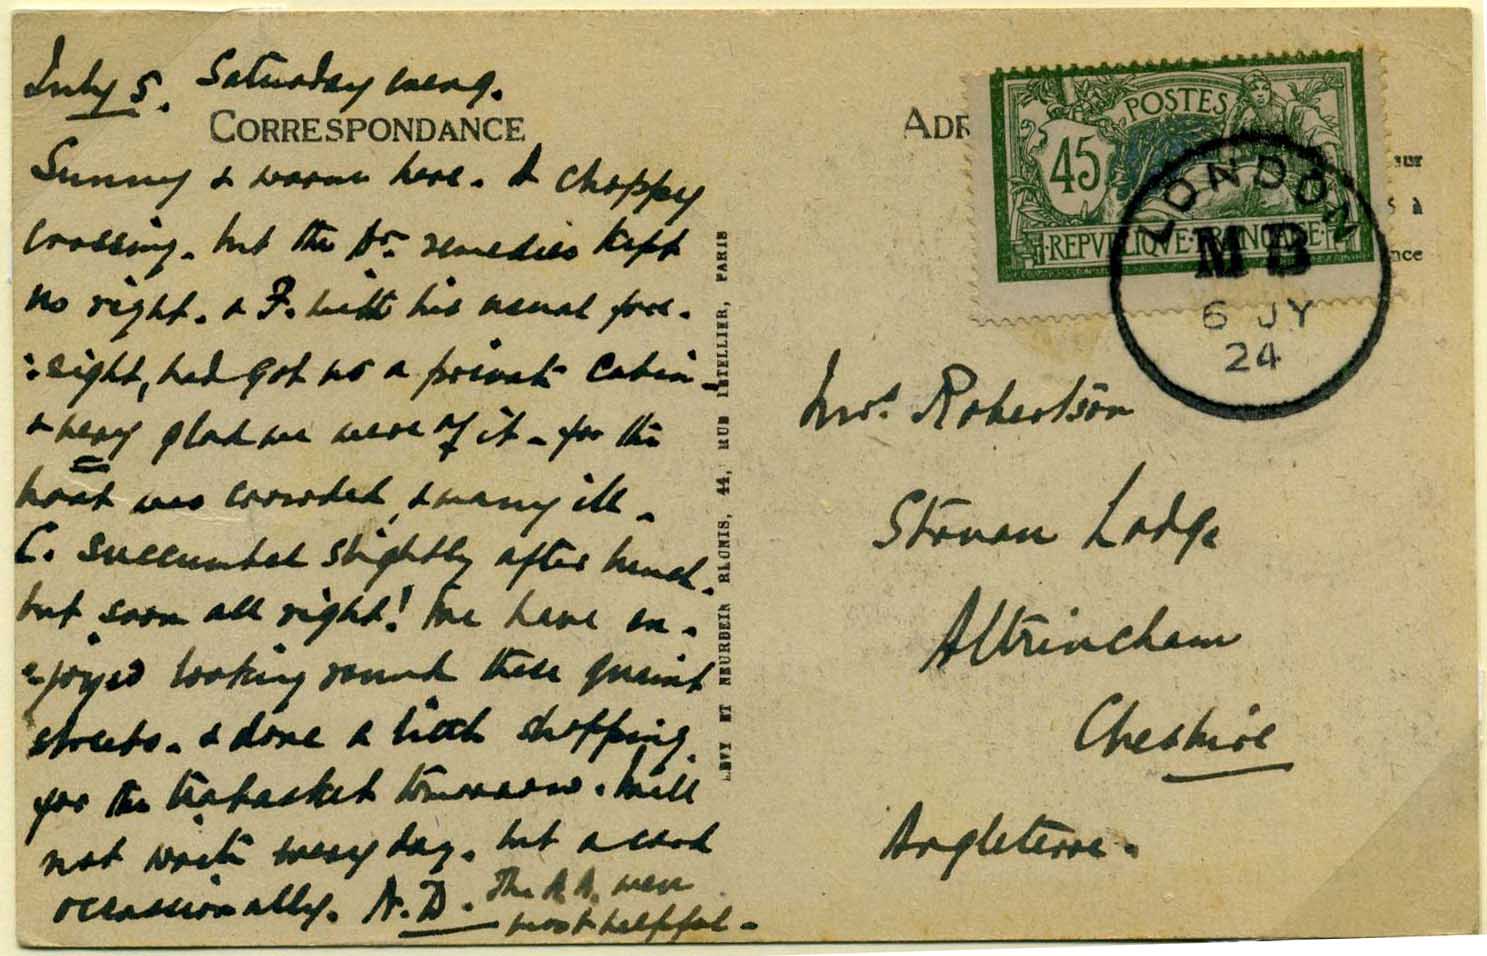 July 5. Saturday eveng.
CORRESPONDANCE
Sunny & warm here. A choppy
crossing, but the Dr. remedies kept
us right. & F. with his usual fore-
:sight, had got us a private cabin -
& very glad we were of it - for the
boat was crowded, & many ill.
C. succumbed slightly after lunch.
but soon all right! We have en-
=joyed looking round these quaint
streets. & done a little shopping
for the teabasket tomorrow. Will
not write every day. but a card
occasionally. A.D. The AA. were
most helpful -
LEVY ET NEURDEIN RÉUNIS, 44, RUE LETELLIER, PARIS
ADR
POSTES
45
REPVBLIQVE FRANÇAISE
LONDON
MB
6 JY
24
eur
s à
nce
Mrs. Robertson
Lodge
Altrincham
Cheshire
Angleterre.